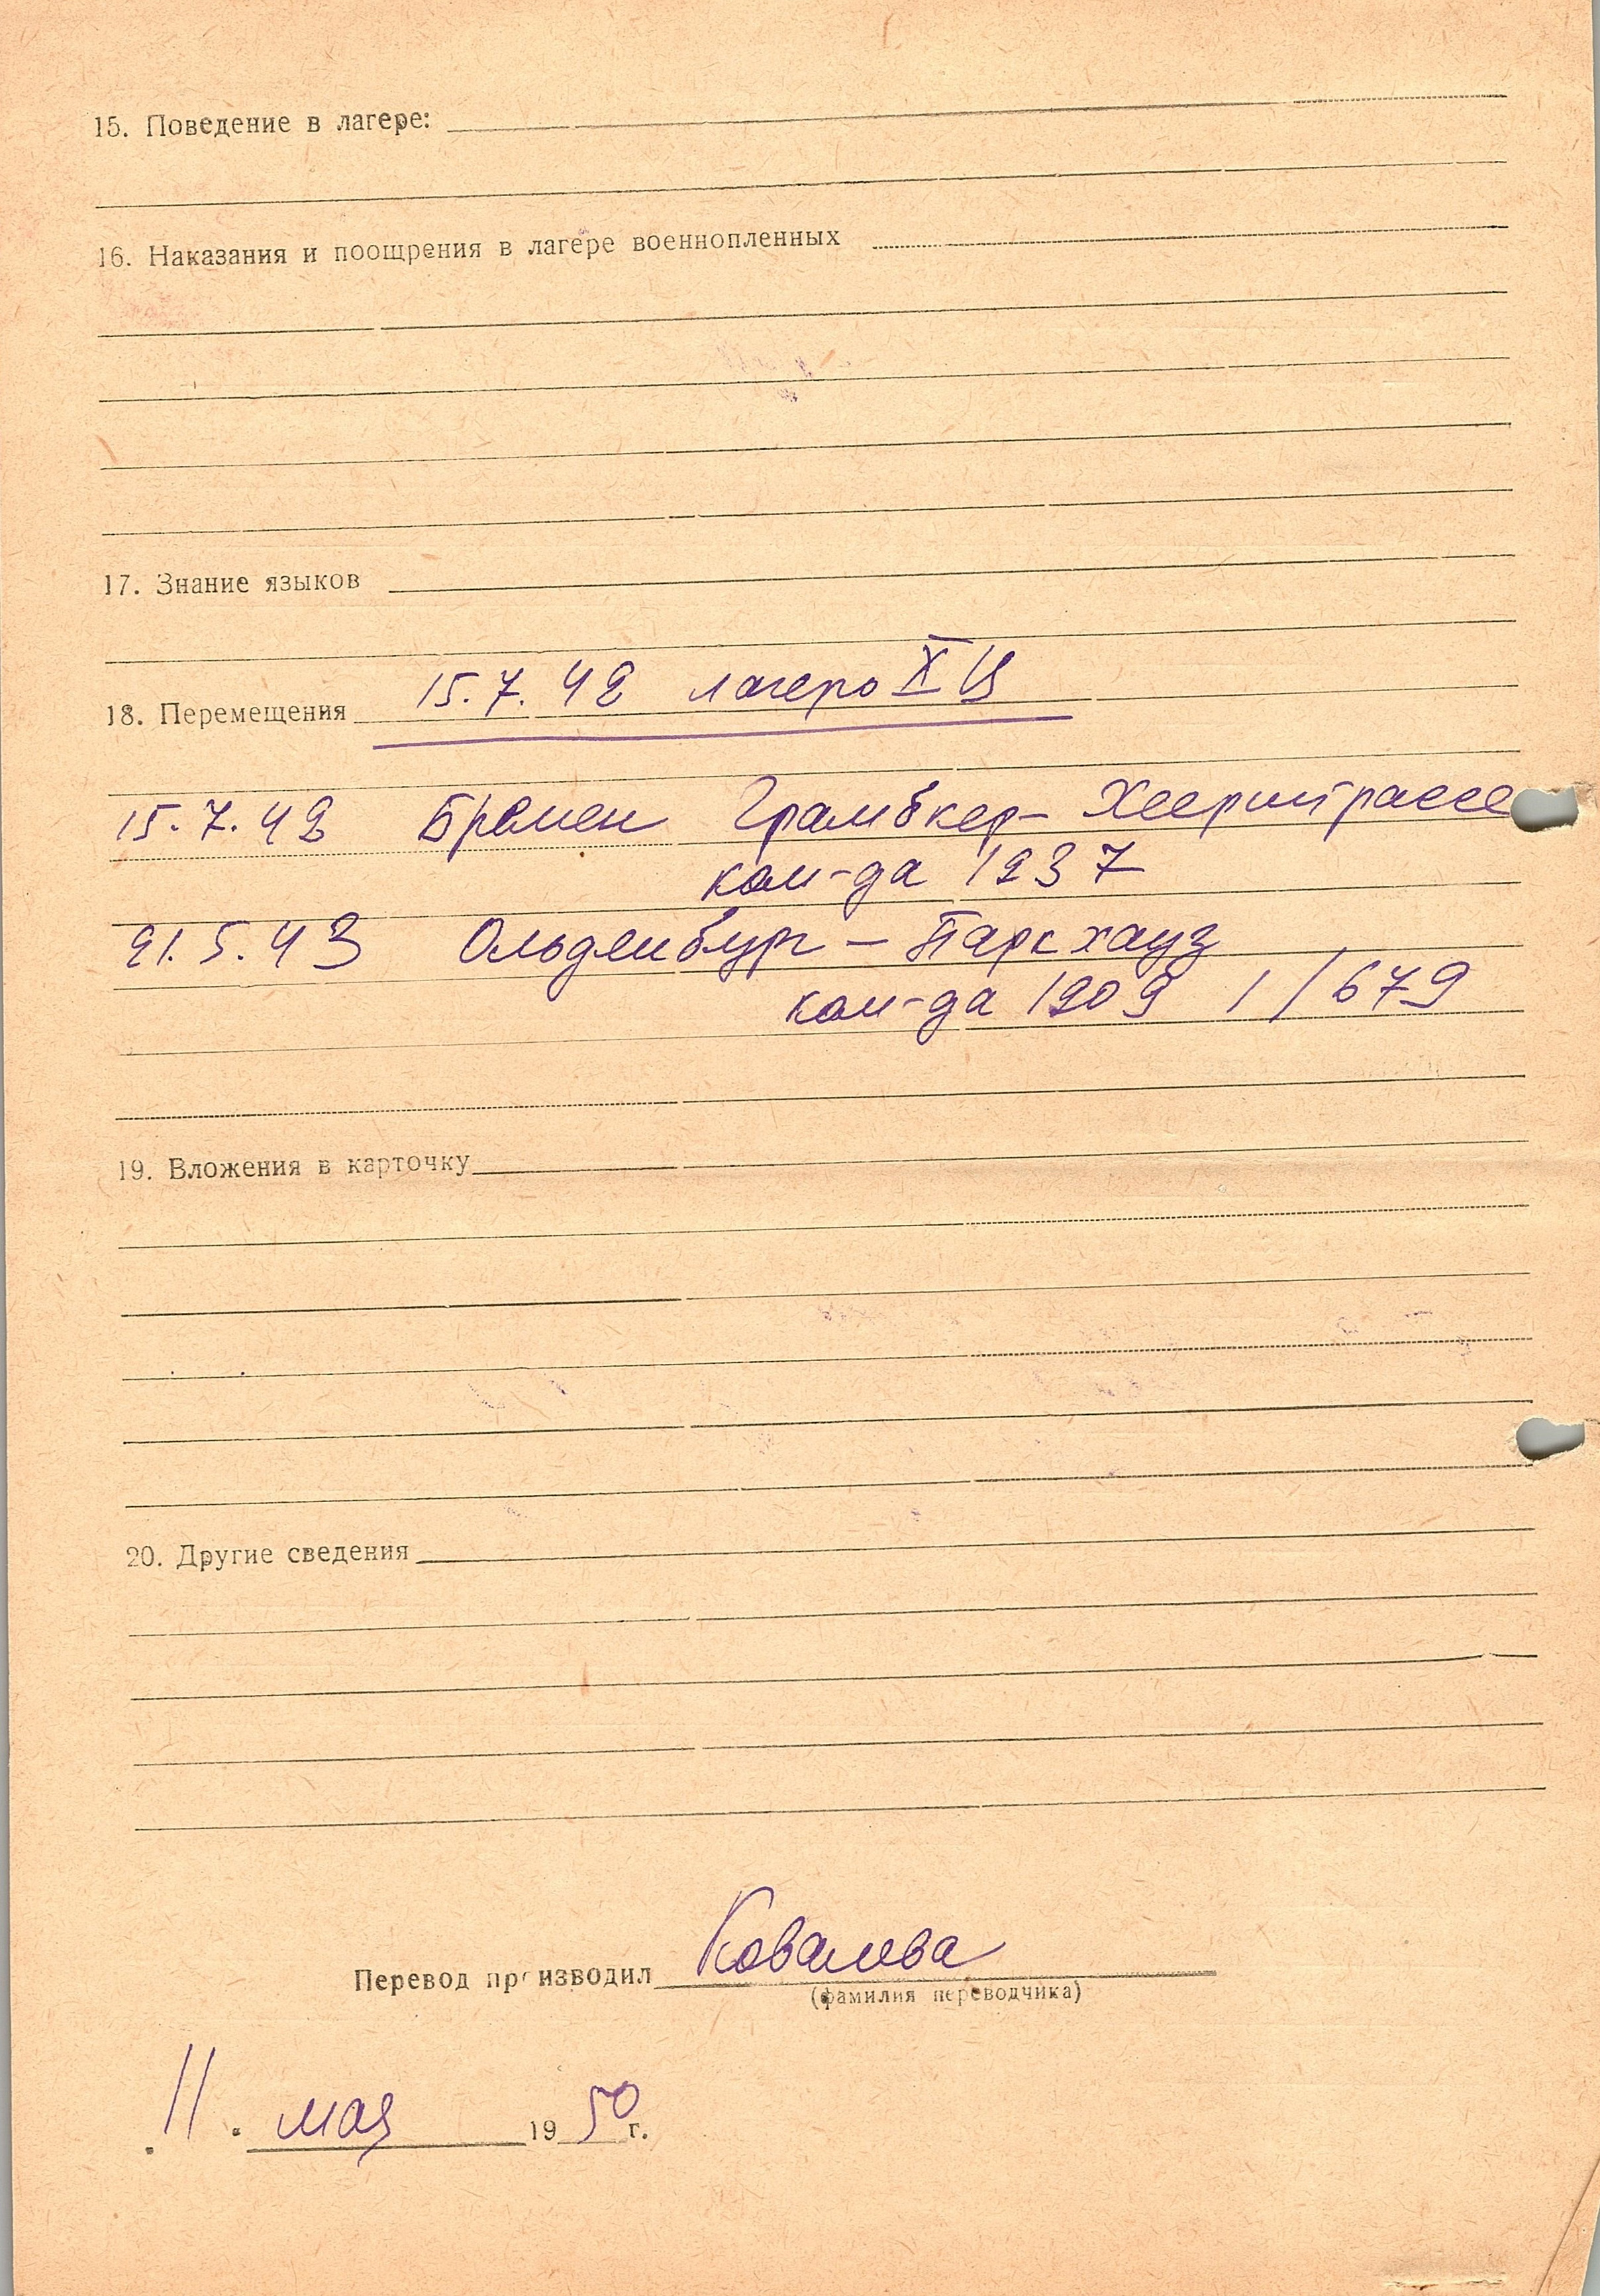 15. Поведение в лагере:
16. Наказания и поощрения в лагере военнопленных
17. Знание языков
18. Перемещения 15.7.42 лагерь X Ц
15.7.42 Бремен Грамбкер-Хеерштрассе
ком-да 1237
21.5.43 Ольденбург - Паркхауз
ком-да 1209 1/679
19. Вложения в карточку
20. Другие сведения
Перевод производил Ковалева
(фамилия переводчика)
11. мая 1950 г.